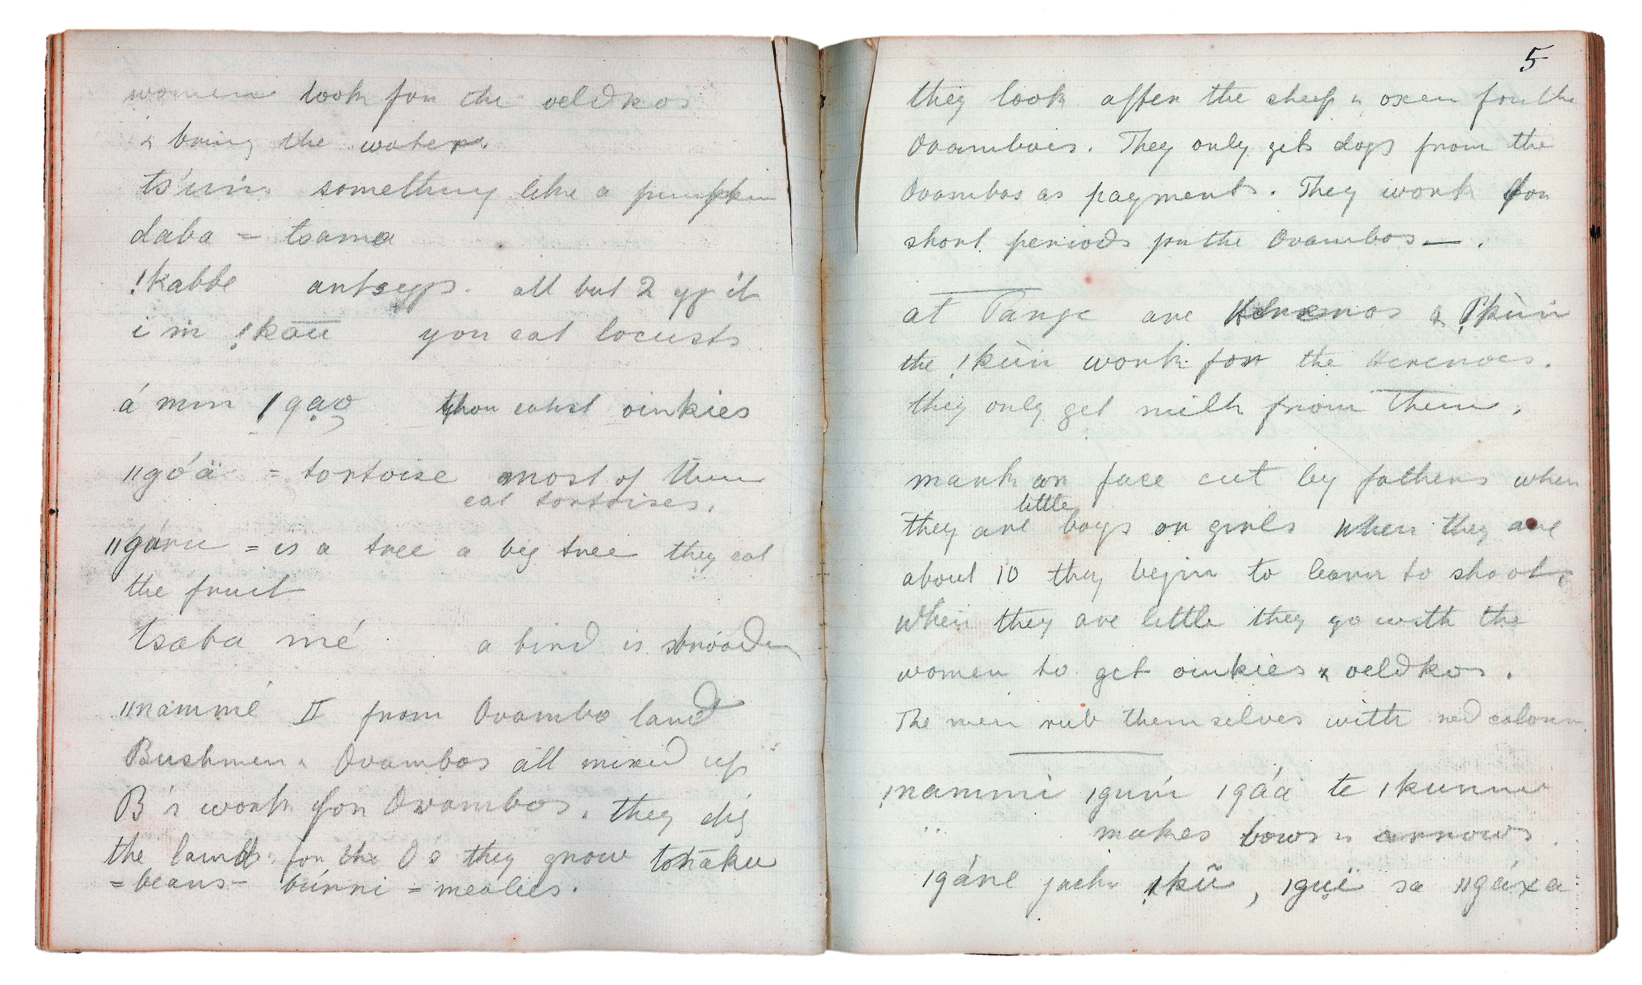 women look for the veldkos
& bring the water.
ts'uin something like a pumpkin
daba = tsama
!kabbe antseggs. all but 2 of it
i m !kau you eat locusts
á mm ǀgao thou eatest oinkies
ǁgóä = tortoise most of them
eat tortoises.
ǁgúru = is a tree a big tree they eat
the fruit
tsaba mé a bird is
ǁnammé II from Ovambo land
Bushmen & Ovambos all mixed up
B's work for Ovambos. they dig
the lands for the O's they grow
= beans - búnni = mealies.
5
they look after the sheep & oxen for the
Ovambos. They only get dogs from the
Ovambos as payment. They work for
short periods for the Ovambos — .
at are Hereros & !kùn
the !kùn work for the Hereroes.
they only get milk from them.
mark on face cut by fathers when
they are little boys or girls when they are
about 10 they begin to learn to shoot,
when they are little they go with the
women to get oinkies & veldkos.
The men rub themselves with red colour
ǃnammi ǀgúṁ ǀgáá te ǀkunnu
" makes bows & arrows.
ǀgáne ǀkũ, ǀguï sa ǁgáxa